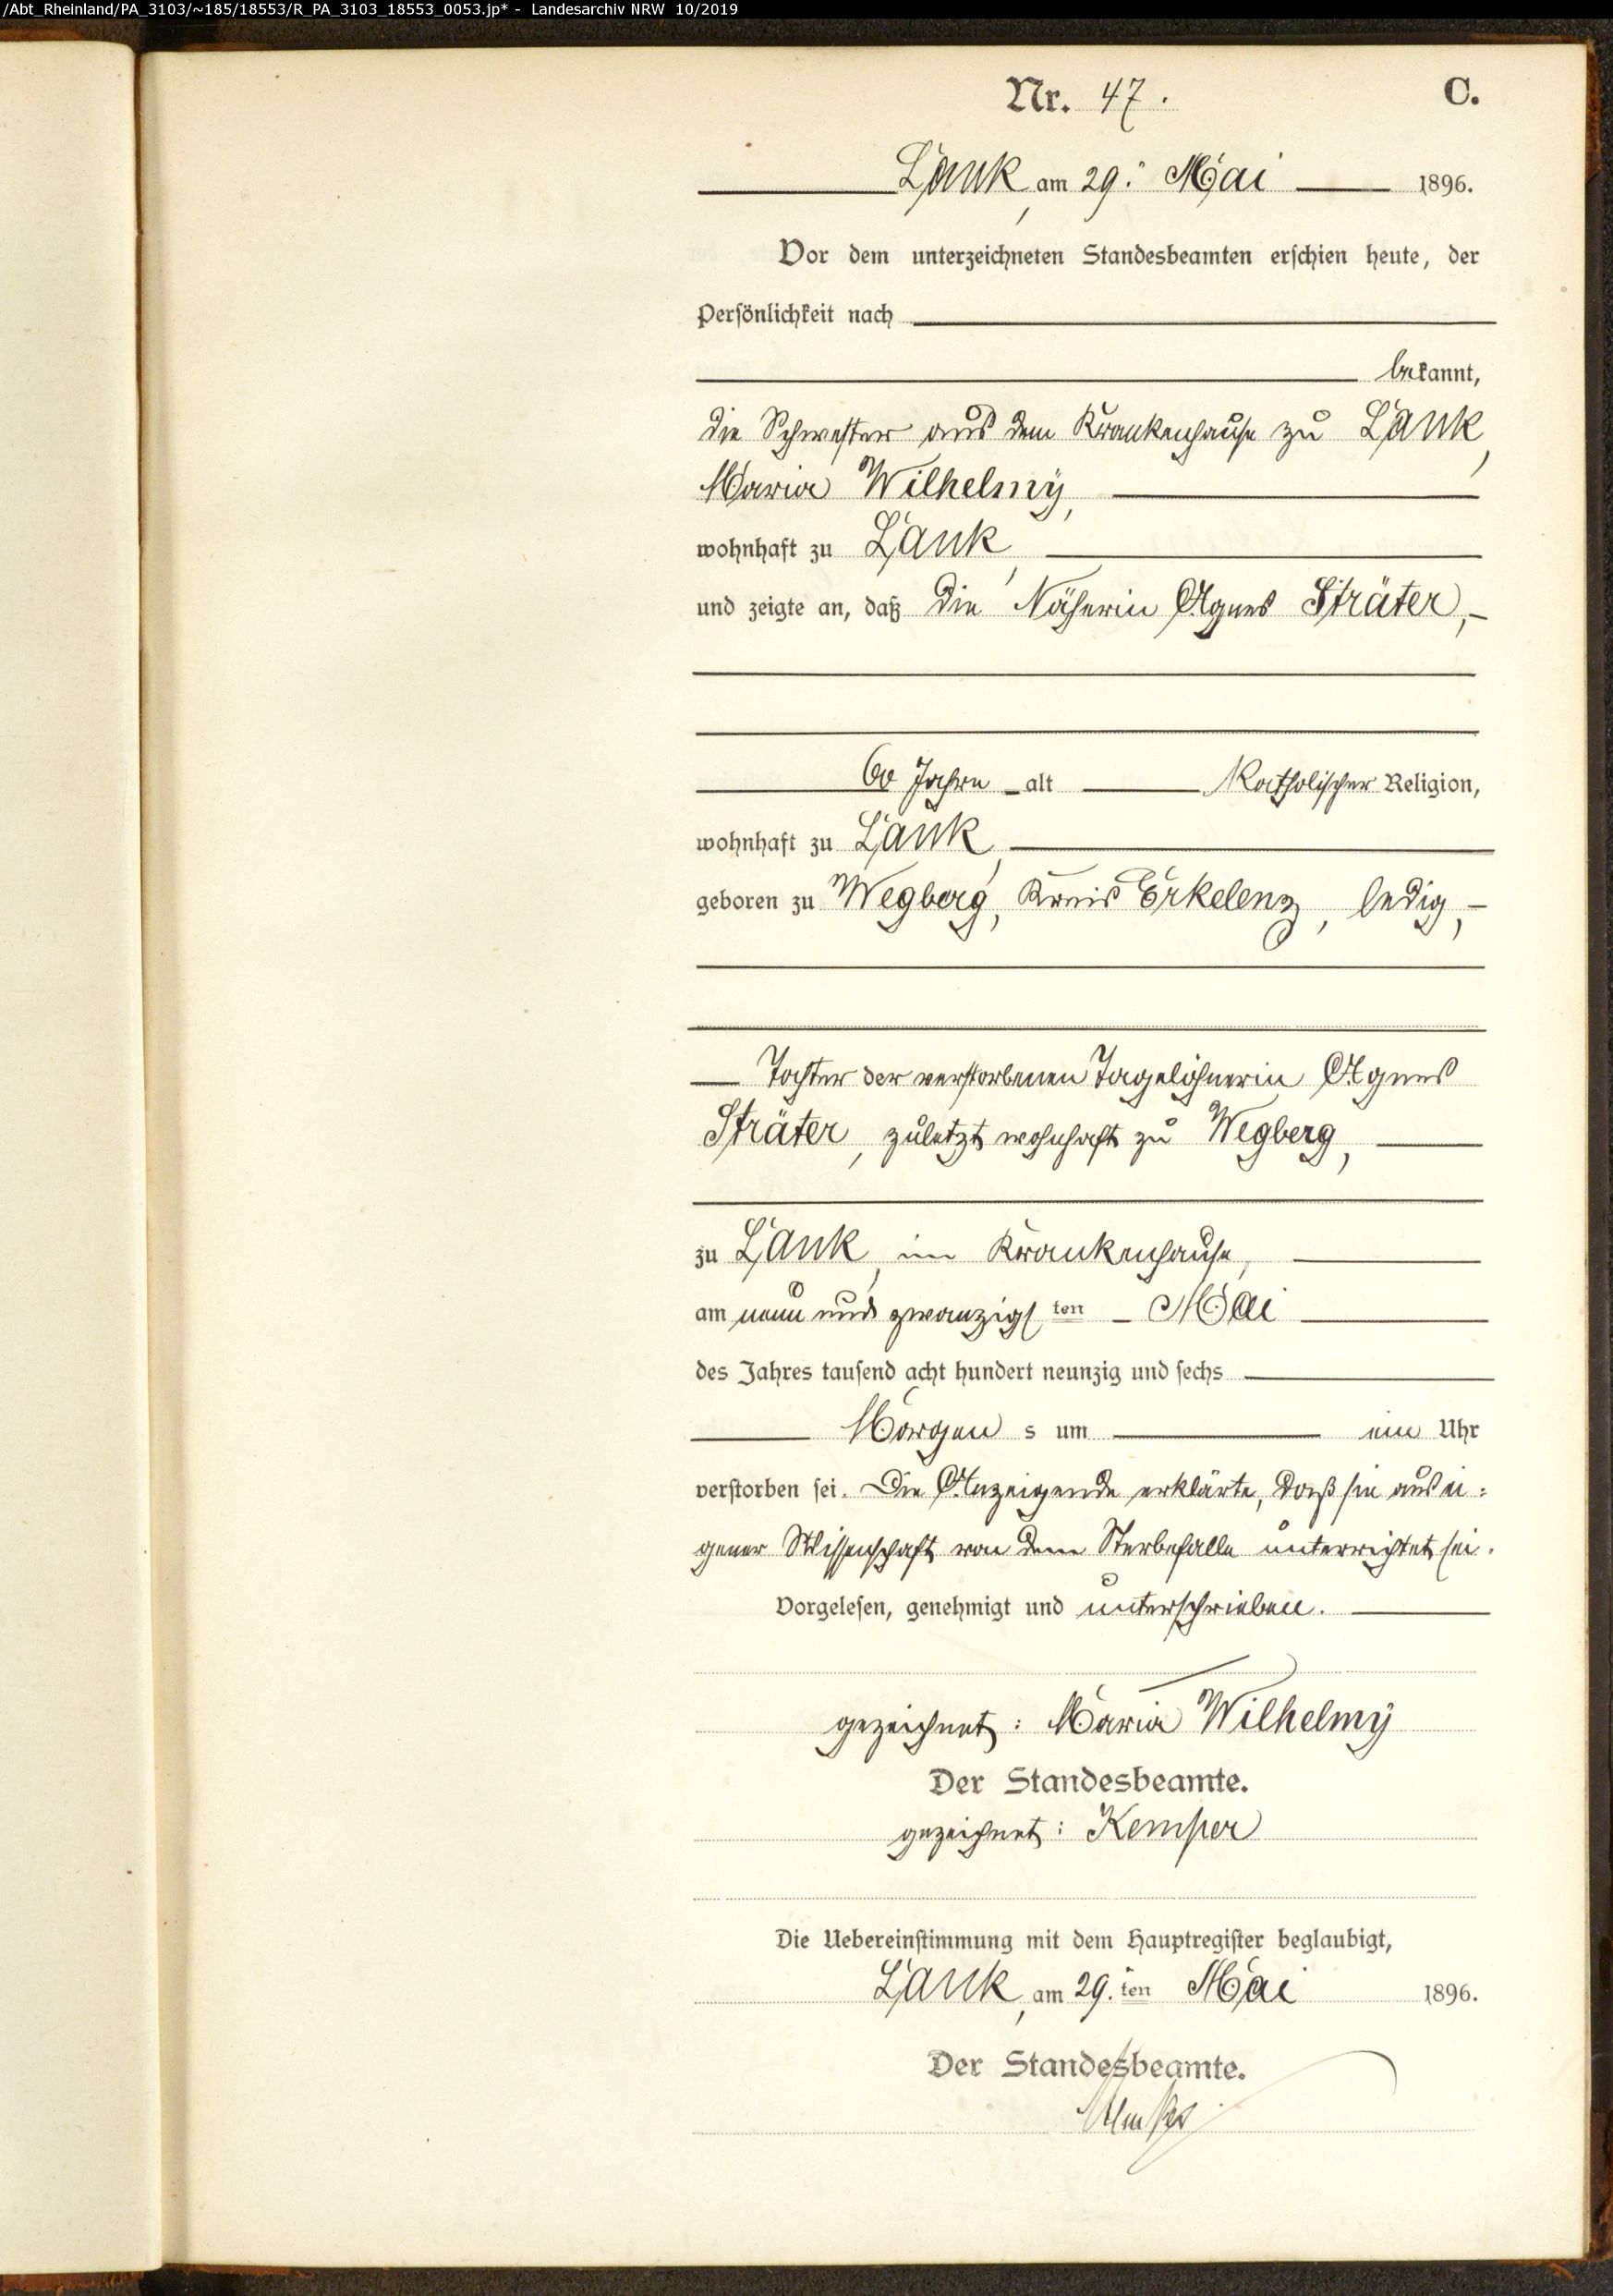 /Abt_Rheinland/PA_3103/~185/18553/R_PA_3103_18553_0053.jp* - Landesarchiv NRW 10/2019
Nr. 47. C.
Lank, am 29. Mai 1896.
Vor dem unterzeichneten Standesbeamten erschien heute, der
Persönlichkeit nach
bekannt,
die Schwester aus dem Krankenhause zu Lank,
Maria Wilhelmy,
wohnhaft zu Lank,
und zeigte an, daß die Näherin Agnes Sträter,
60 Jahre alt Katholischer Religion,
wohnhaft zu Lank,
geboren zu Wegberg, Kreis Erkelenz, ledig,
Tochter der verstorbenen Tagelöhnerin Agnes
Sträter, zuletzt wohnhaft zu Wegberg,
zu Lank, im Krankenhause,
am neun und zwanzigsten Mai
des Jahres tausend acht hundert neunzig und sechs
Morgens um ein Uhr
verstorben sei. Die Anzeigende erklärte, daß sie aus ei:
gener Wissenschaft von dem Sterbefalle unterrichtet sei.
Vorgelesen, genehmigt und unterschrieben.
gezeichnet: Maria Wilhelmy
Der Standesbeamte.
gezeichnet: Kemper
Die Uebereinstimmung mit dem Hauptregister beglaubigt,
Lank, am 29.ten Mai 1896.
Der Standesbeamte.
Kemper